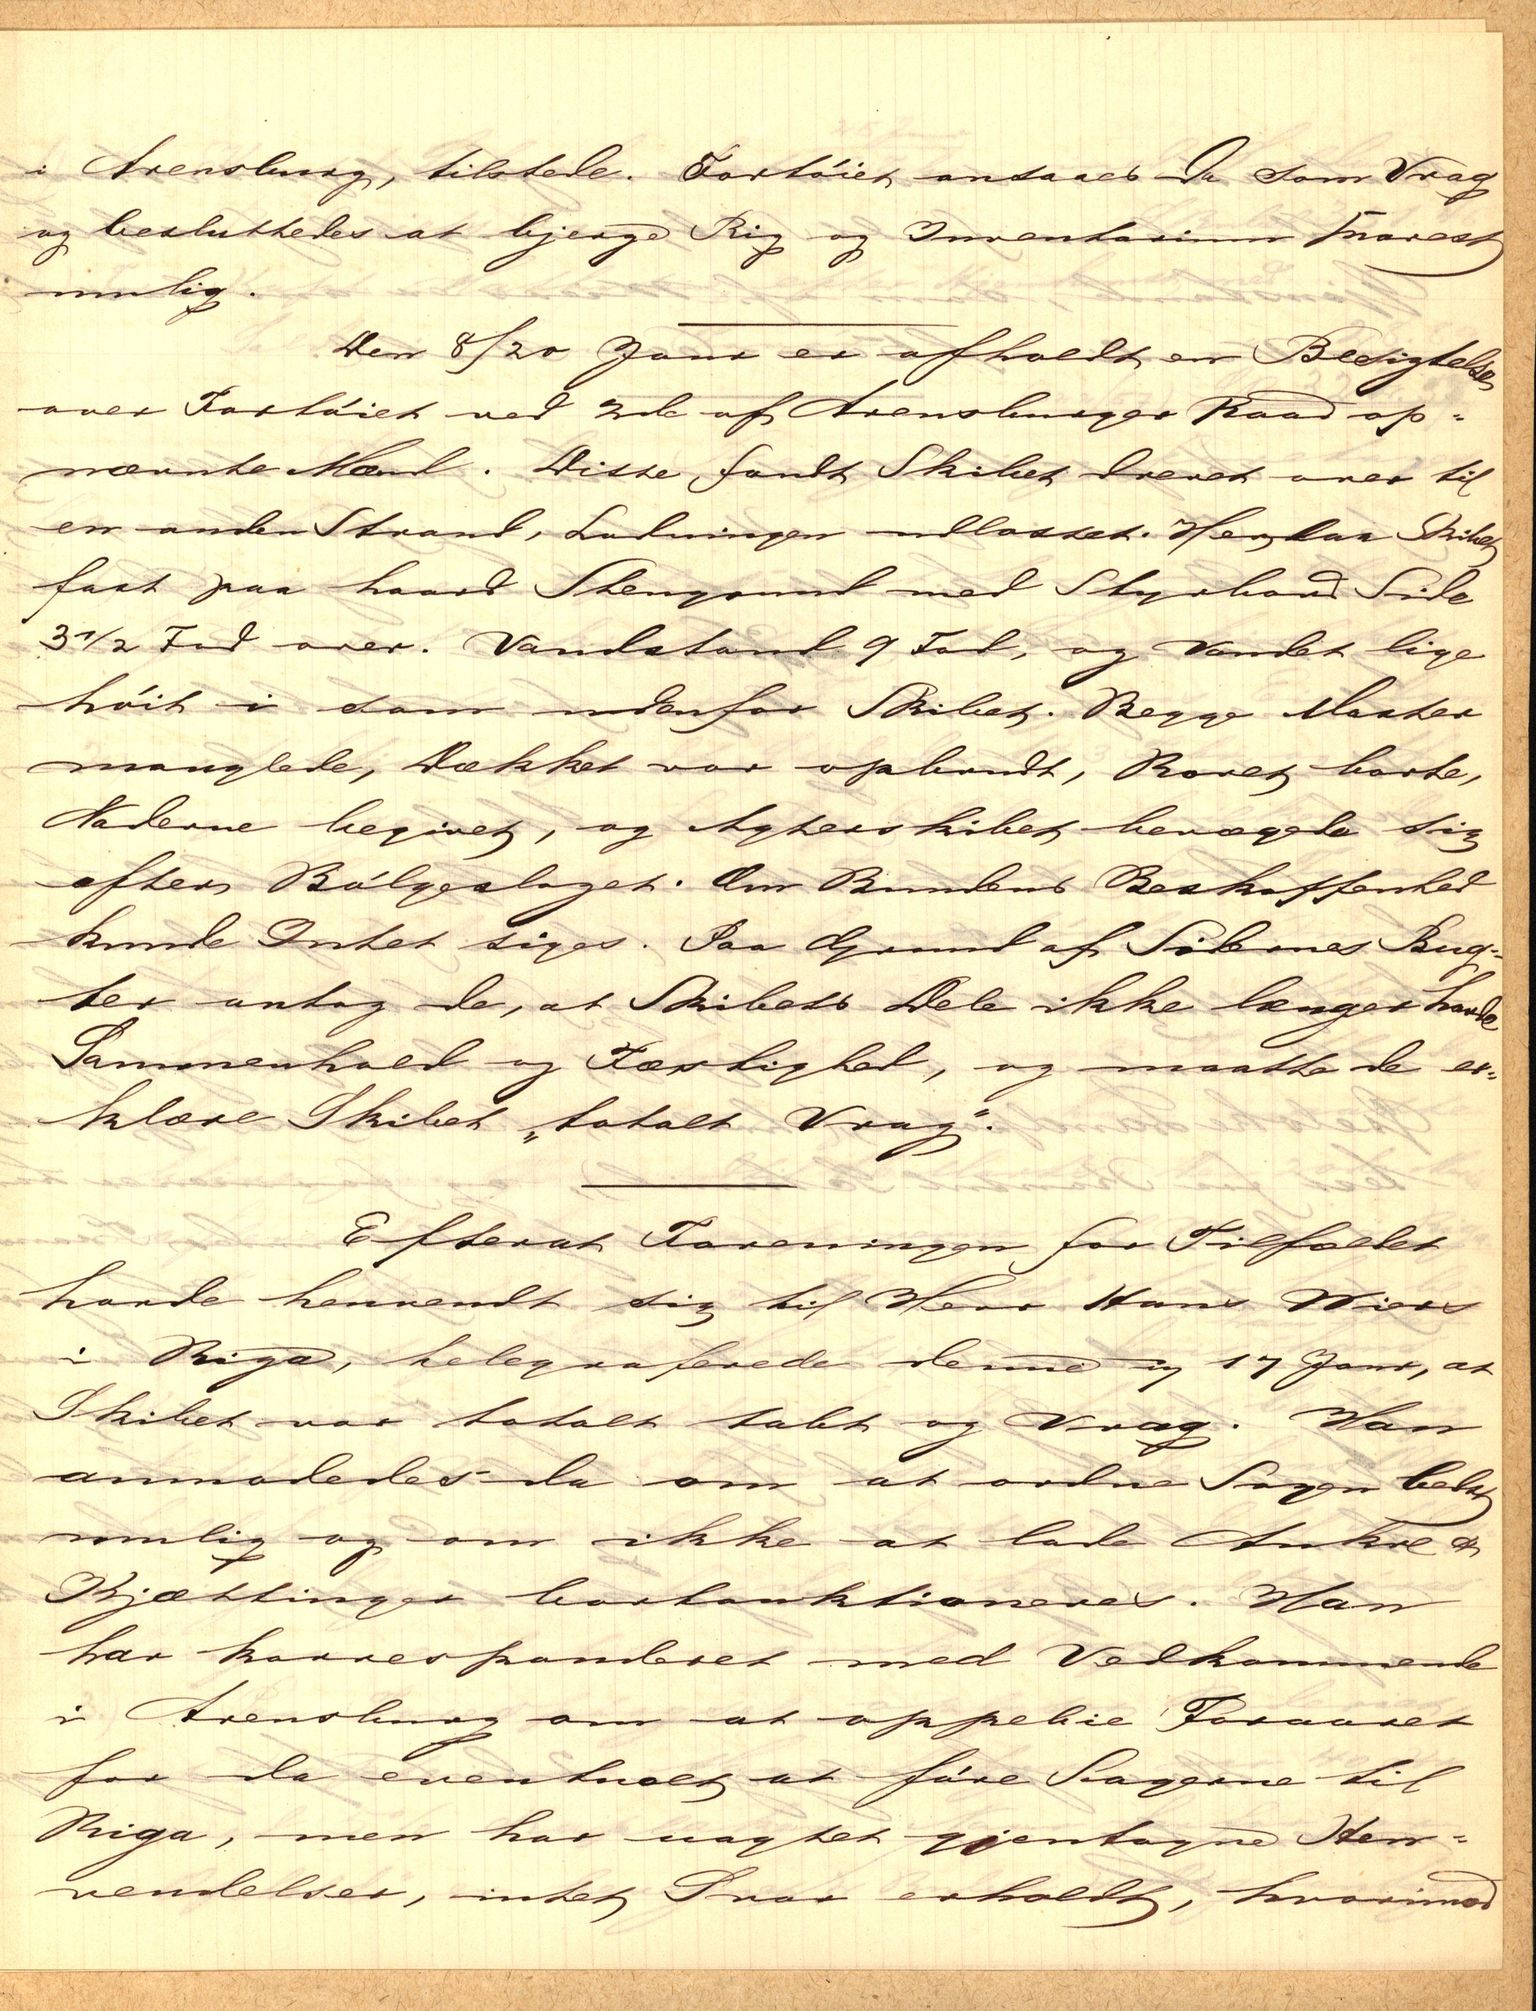 i Arensburg, tilstede. Fartöiet ansaaes da som Vrag
og besluttedes at bjerge Rig og Inventarium snarest
mulig.
Den 8/20 Janr er afholdt en Besigtelse
over Fartöiet ved 3de af Arensburger Raad op-
nævnte Mænd. Disse fandt Skibet drevet over til
en anden Strand, Ladningen udlosset. Her laa Skibet
fast paa haard Stengrund med Styrbord Side
3 1/2 Fod over. Vandstand 9 Fod, og Vandet lige
höit i som udenfor Skibet. Begge Master
manglede, Dækket var opbrudt, Roret borte,
Naderne begivet, og Agterskibet bevægede sig
efter Bölgeslaget. Om Bundens Beskaffenhed
kunde Intet siges. Paa Grund af Sidernes Bug-
ter antog de, at Skibets Dele ikke længer havde
Sammenhold og Fæstighed, og maatte de er-
klære Skibet „totalt Vrag".
Efterat Foreningen for Tilfældet
havde henvendt sig til Herr Hans Wiers
i Riga, telegraferede denne 17 Janr, at
Skibet var totalt tabt og Vrag. Han
anmodedes da om at ordne Sagen bedst
mulig og om ikke at lade Ankre &
Kjættinger bortauktioneres. Han
har korresponderet med Vedkommende
i Arensburg om at oppebie Foraaret
for da eventuelt at före Sagerne til
Riga, men har uagtet gjentagne Hen-
vendelser, intet Svar erholdt, hvorimod